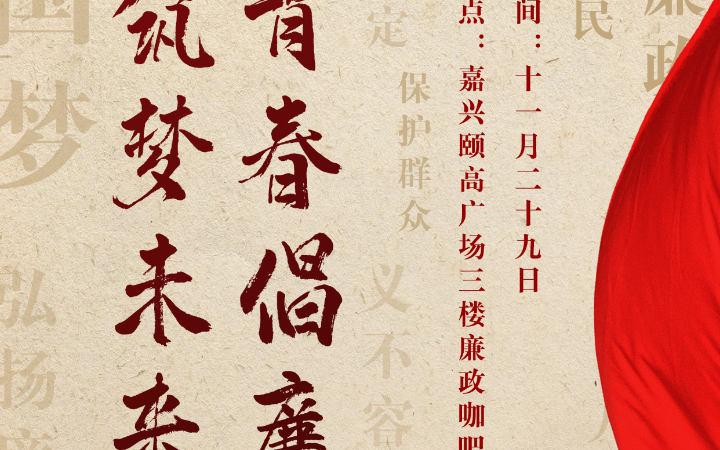 廉政
民
间：十一月二十九日
点：嘉兴颐高广场三楼廉政咖吧
定
保护群众
义不容
青春倡廉
筑梦未来
国梦
弘扬